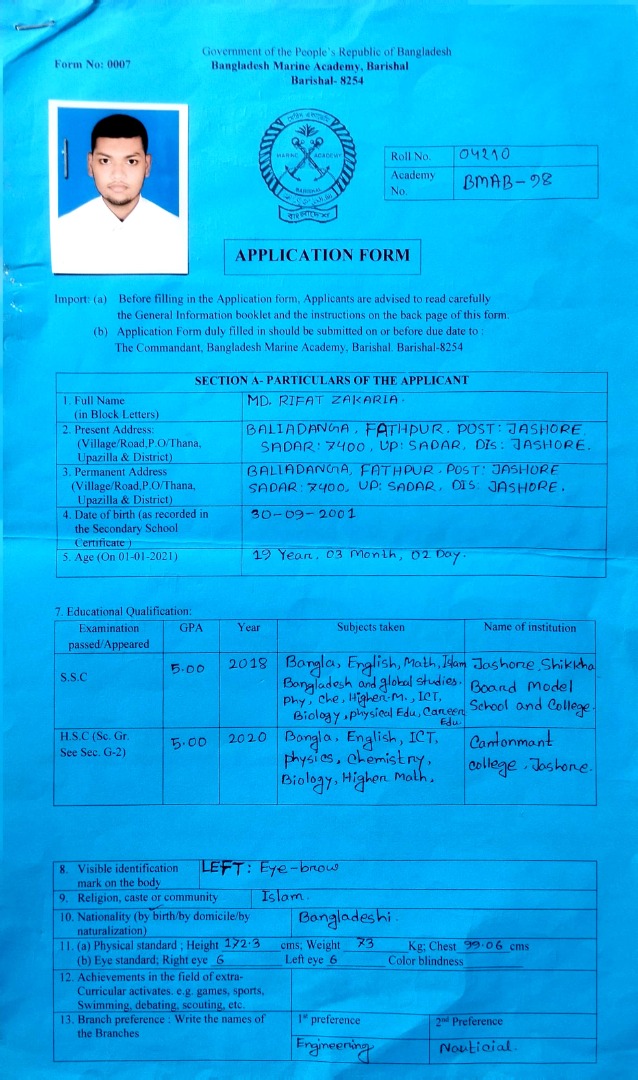 Government of the People's Republic of Bangladesh
Form No: 0007
Bangladesh Marine Academy, Barishal
Barishal- 8254
MARINE ACADEMY
BARISHAL
বাংলাদেশ
Roll No. 04210
Academy No. BMAB-28
APPLICATION FORM
Import: (a) Before filling in the Application form, Applicants are advised to read carefully
the General Information booklet and the instructions on the back page of this form.
(b) Application Form duly filled in should be submitted on or before due date to :
The Commandant, Bangladesh Marine Academy, Barishal. Barishal-8254
SECTION A- PARTICULARS OF THE APPLICANT
1. Full Name
(in Block Letters)
MD. RIFAT ZAKARIA.
2. Present Address:
(Village/Road,P.O/Thana,
Upazilla & District)
BALIADANGA, FATHPUR, POST: JASHORE,
SADAR: 7400, UP: SADAR, DIS: JASHORE.
3. Permanent Address
(Village/Road,P.O/Thana,
Upazilla & District)
BALIADANGA, FATHPUR. POST: JASHORE
SADAR: 7400, UP: SADAR, DIS: JASHORE.
4. Date of birth (as recorded in
the Secondary School
Certificate )
30-09-2001
5. Age (On 01-01-2021)
19 Year, 03 Month, 02 Day.
7. Educational Qualification:
Examination
passed/Appeared
GPA
Year
Subjects taken
Name of institution
S.S.C
5.00
2018
Bangla, English, Math, Islam
Bangladesh and global studies.
Phy, che, Higher-M., ICT,
Biology, physical Edu, Career
Edu
Jashore Shikkha
Board Model
School and College.
H.S.C (Sc. Gr.
See Sec. G-2)
5.00
2020
Bangla, English, ICT,
physics, Chemistry,
Biology, Higher Math.
Cantonmant
college, Jashore.
8. Visible identification
mark on the body
LEFT: Eye-brow
9. Religion, caste or community
Islam.
10. Nationality (by birth/by domicile/by
naturalization)
Bangladeshi.
11. (a) Physical standard ; Height 172.3 cms; Weight 73 Kg; Chest 99.06 cms
(b) Eye standard; Right eye 6 Left eye 6 Color blindness
12. Achievements in the field of extra-
Curricular activates. e.g. games, sports,
Swimming, debating, scouting, etc.
13. Branch preference : Write the names of
the Branches
1st preference
2nd Preference
Engineering
Nauticial.